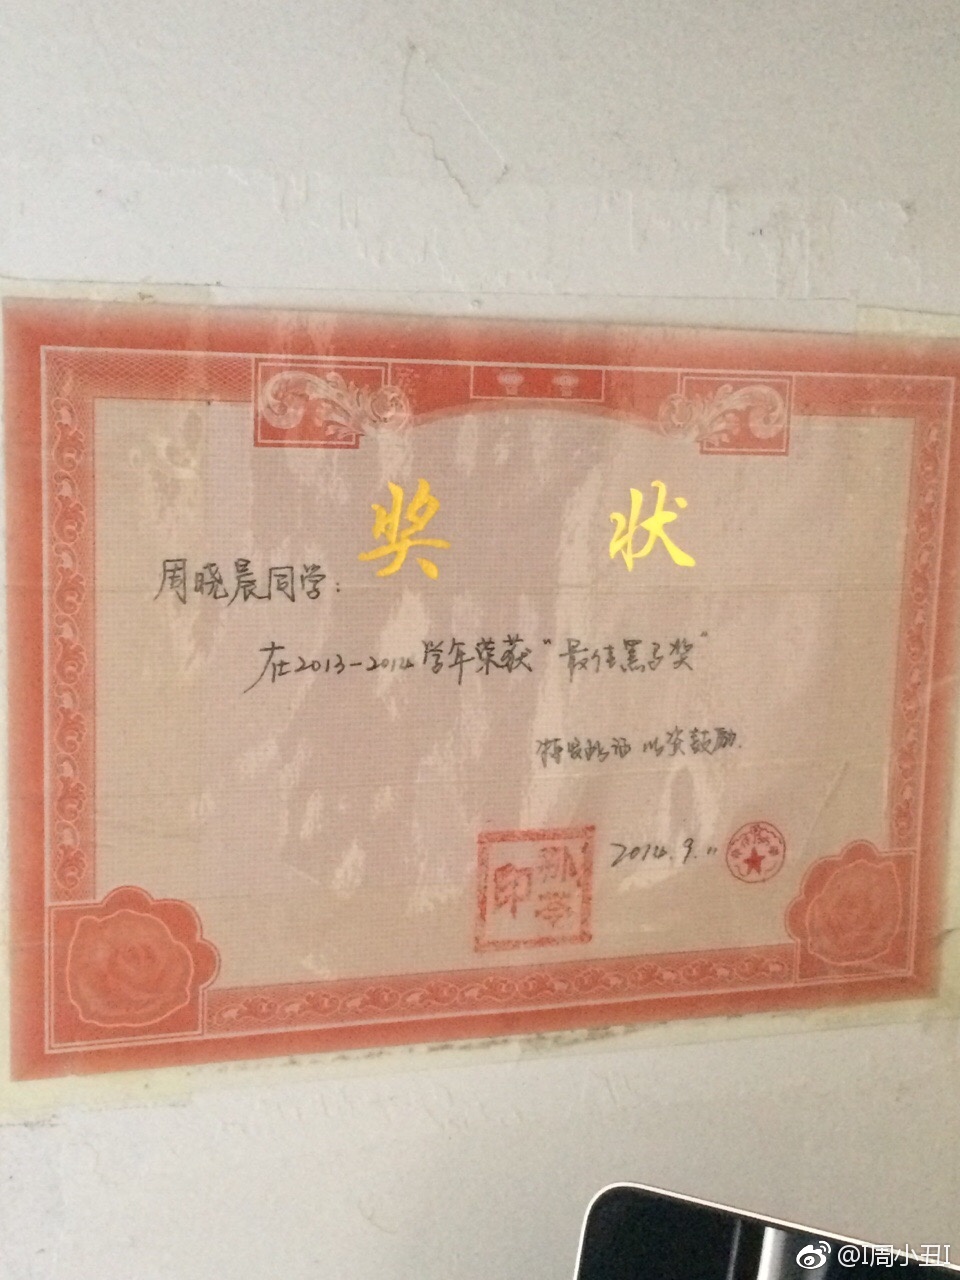 奖 状
周晓晨同学：
在2013-2014学年荣获“最佳黑子奖”
特发此证 以资鼓励.
2014.9.11
印
@I周小丑I